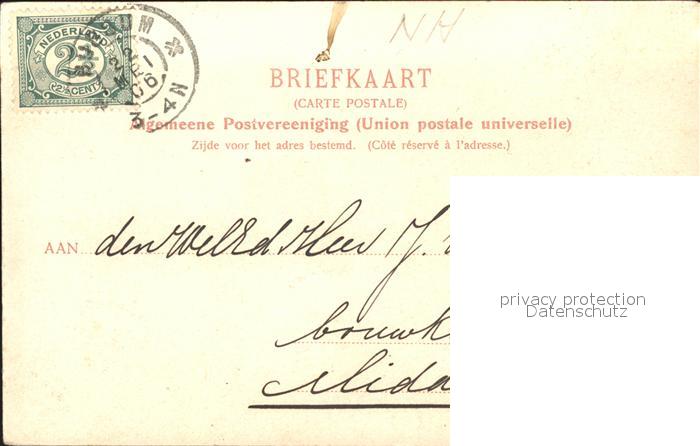 NH
NEDERLAND
2½
2½ CENT
3-4 N
BRIEFKAART
(CARTE POSTALE)
Algemeene Postvereeniging (Union postale universelle)
Zijde voor het adres bestemd. (Côté réservé à l'adresse.)
AAN den WelEd Heer J.
bouwk
Midd
privacy protection
Datenschutz